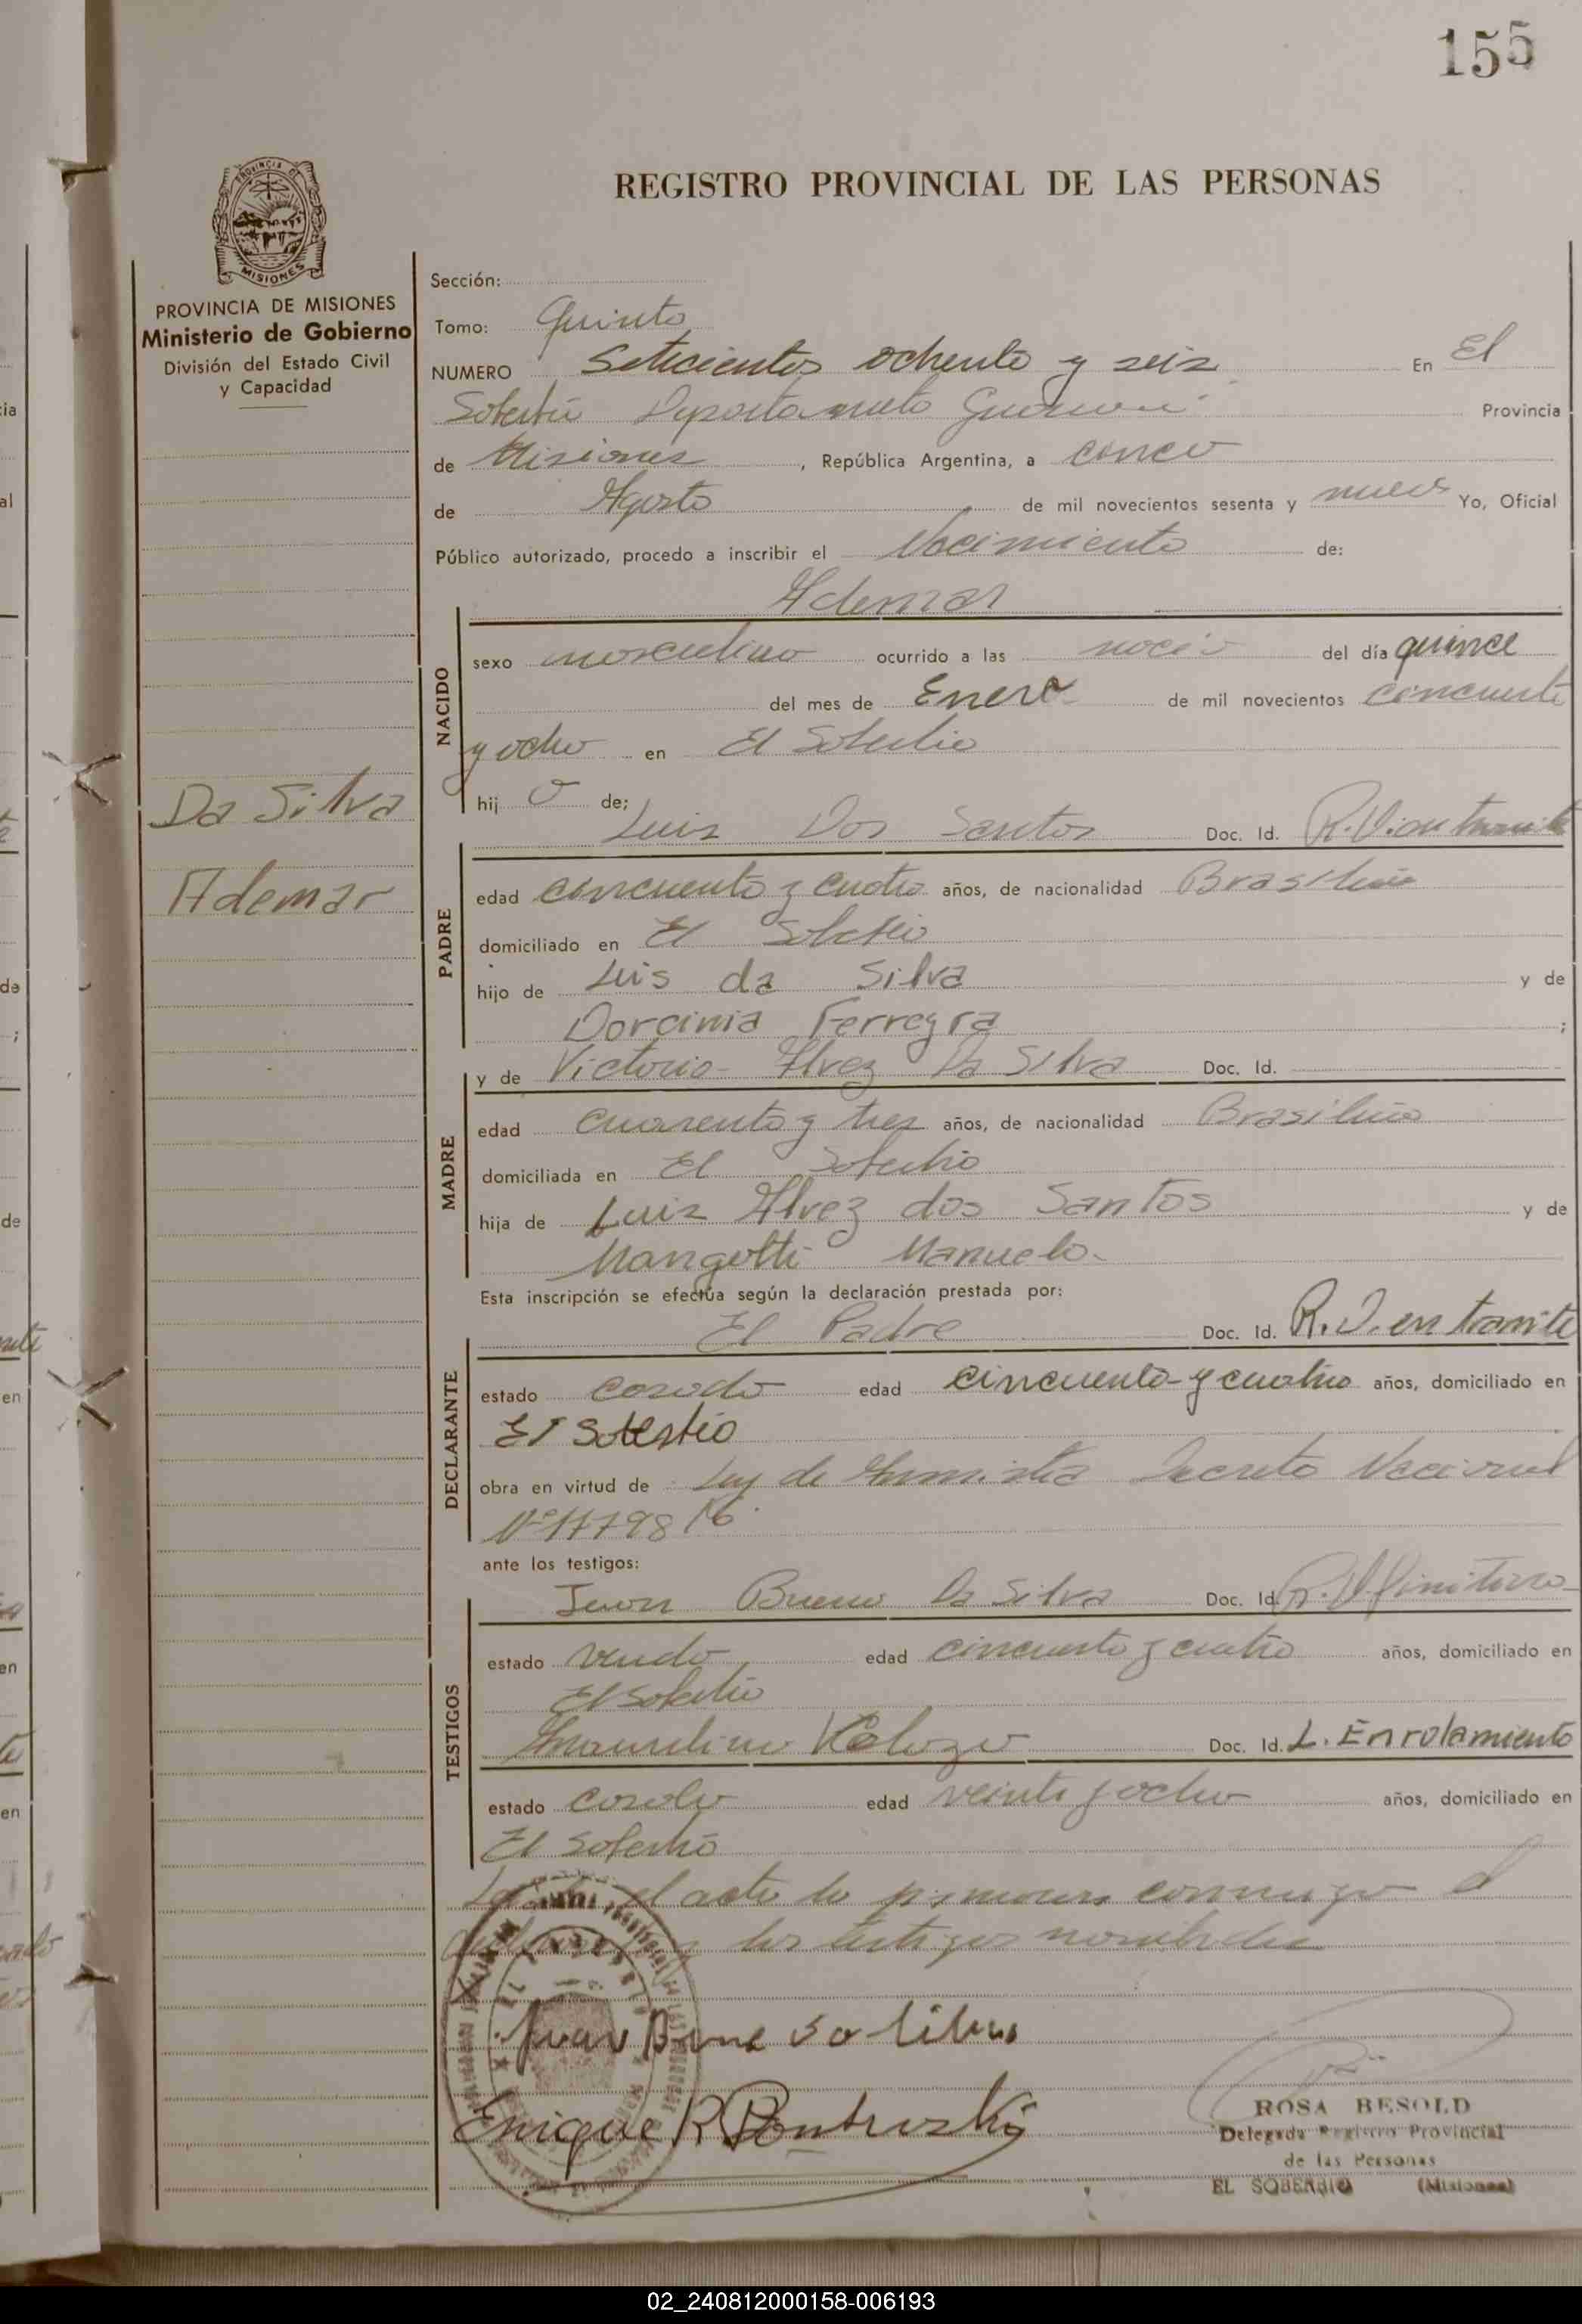 155
REGISTRO PROVINCIAL DE LAS PERSONAS
PROVINCIA DE MISIONES
Ministerio de Gobierno
División del Estado Civil
y Capacidad
Sección:
Tomo: Quinto
NUMERO Setecientos ochenta y seis En El
Soberbio Departamento Guaraní Provincia
de Misiones, República Argentina, a cinco
de Agosto de mil novecientos sesenta y nueve Yo, Oficial
Público autorizado, procedo a inscribir el Nacimiento de:
Ademar
NACIDO
sexo masculino ocurrido a las del día quince
del mes de Enero de mil novecientos cincuenta
y ocho en El Soberbio
hij o de;
Da Silva
Ademar
PADRE
Luis Dos Santos Doc. Id. en tramite
edad cincuenta y cuatro años, de nacionalidad Brasileña
domiciliado en El Soberbio
hijo de Luis da Silva y de
Dorcinia Ferreyra ;
MADRE
y de Victoria Alvez Da Silva Doc. Id.
edad cuarenta y tres años, de nacionalidad Brasileña
domiciliada en El Soberbio
hija de Luis Alvez dos Santos y de
Mangotti Manuela.
Esta inscripción se efectúa según la declaración prestada por:
DECLARANTE
El Padre Doc. Id. R.D. en tramite
estado casado edad cincuenta y cuatro años, domiciliado en
El Soberbio
obra en virtud de Ley de Amnistia Decreto Nacional
Nº 17798
ante los testigos:
TESTIGOS
Juan Bueno Da Silva Doc. Id.
estado viudo edad cincuenta y cuatro años, domiciliado en
El Soberbio
Doc. Id. L. Enrolamiento
estado casado edad veinte y ocho años, domiciliado en
El Soberbio
el acta la firman conmigo el
los testigos nombrados
Enrique R
ROSA BESOLD
Delegada Registro Provincial
de las Personas
EL SOBERBIO (Misiones)
02_240812000158-006193